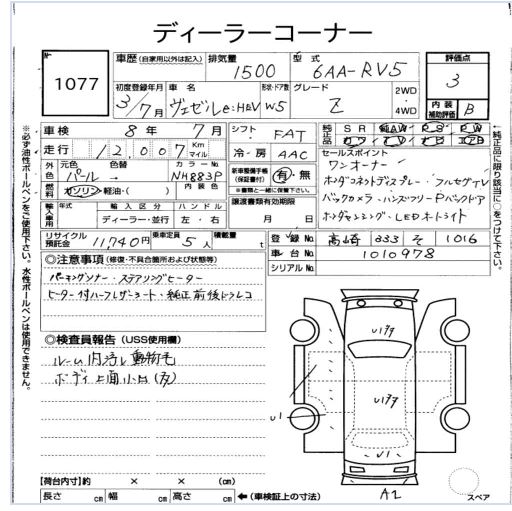 ディーラーコーナー
No 1077
車歴 (自家用以外は記入) 排気量 1500
型式 6AA-RV5
評価点 3
内装補助評価 B
初度登録年月 3/7月
車名 ヴェゼル e:HEV
形状・ドア数 W5
グレード Z
2WD
4WD
車検 8年 7月
シフト FAT
純正品 SR AAW PS PW
走行 12,007 Km マイル
冷房 AAC
外色 元色 パール 色替 カラーNo. NH883P
内装色
燃料 ガソリン・軽油・( )
新車整備手帳(保証書付) 有・無
※書類と一緒に保管下さい。
セールスポイント
ワンオーナー
ホンダコネクトディスプレー・フルセグTV
バックカメラ・ハンズフリーPバックドア
ホンダセンシング・LEDホトライト
輸入車用 年式 輸入区分 ディーラー・並行 ハンドル 左・右
譲渡書類有効期限 月 日
リサイクル預託金 11,740円
乗車定員 5人
積載量 t
登録No. 高崎 333 そ 1016
車台No. 1010978
シリアルNo.
◎注意事項 (修復・不具合箇所および状態等)
パーキングソナー・ステアリングヒーター
ヒーター付ハーフレザーシート・純正前後ドラレコ
◎検査員報告 (USS使用欄)
ルーム内汚レ動物毛
ボディ上面小凸(友)
U1
U1
A1
【荷台内寸】約 × × (cm)
長さ cm 幅 cm 高さ cm ←(車検証上の寸法)
スペア
※必ず油性ボールペンをご使用下さい。水性ボールペンは使用できません。
←純正品に限り該当に○をつけて下さい。